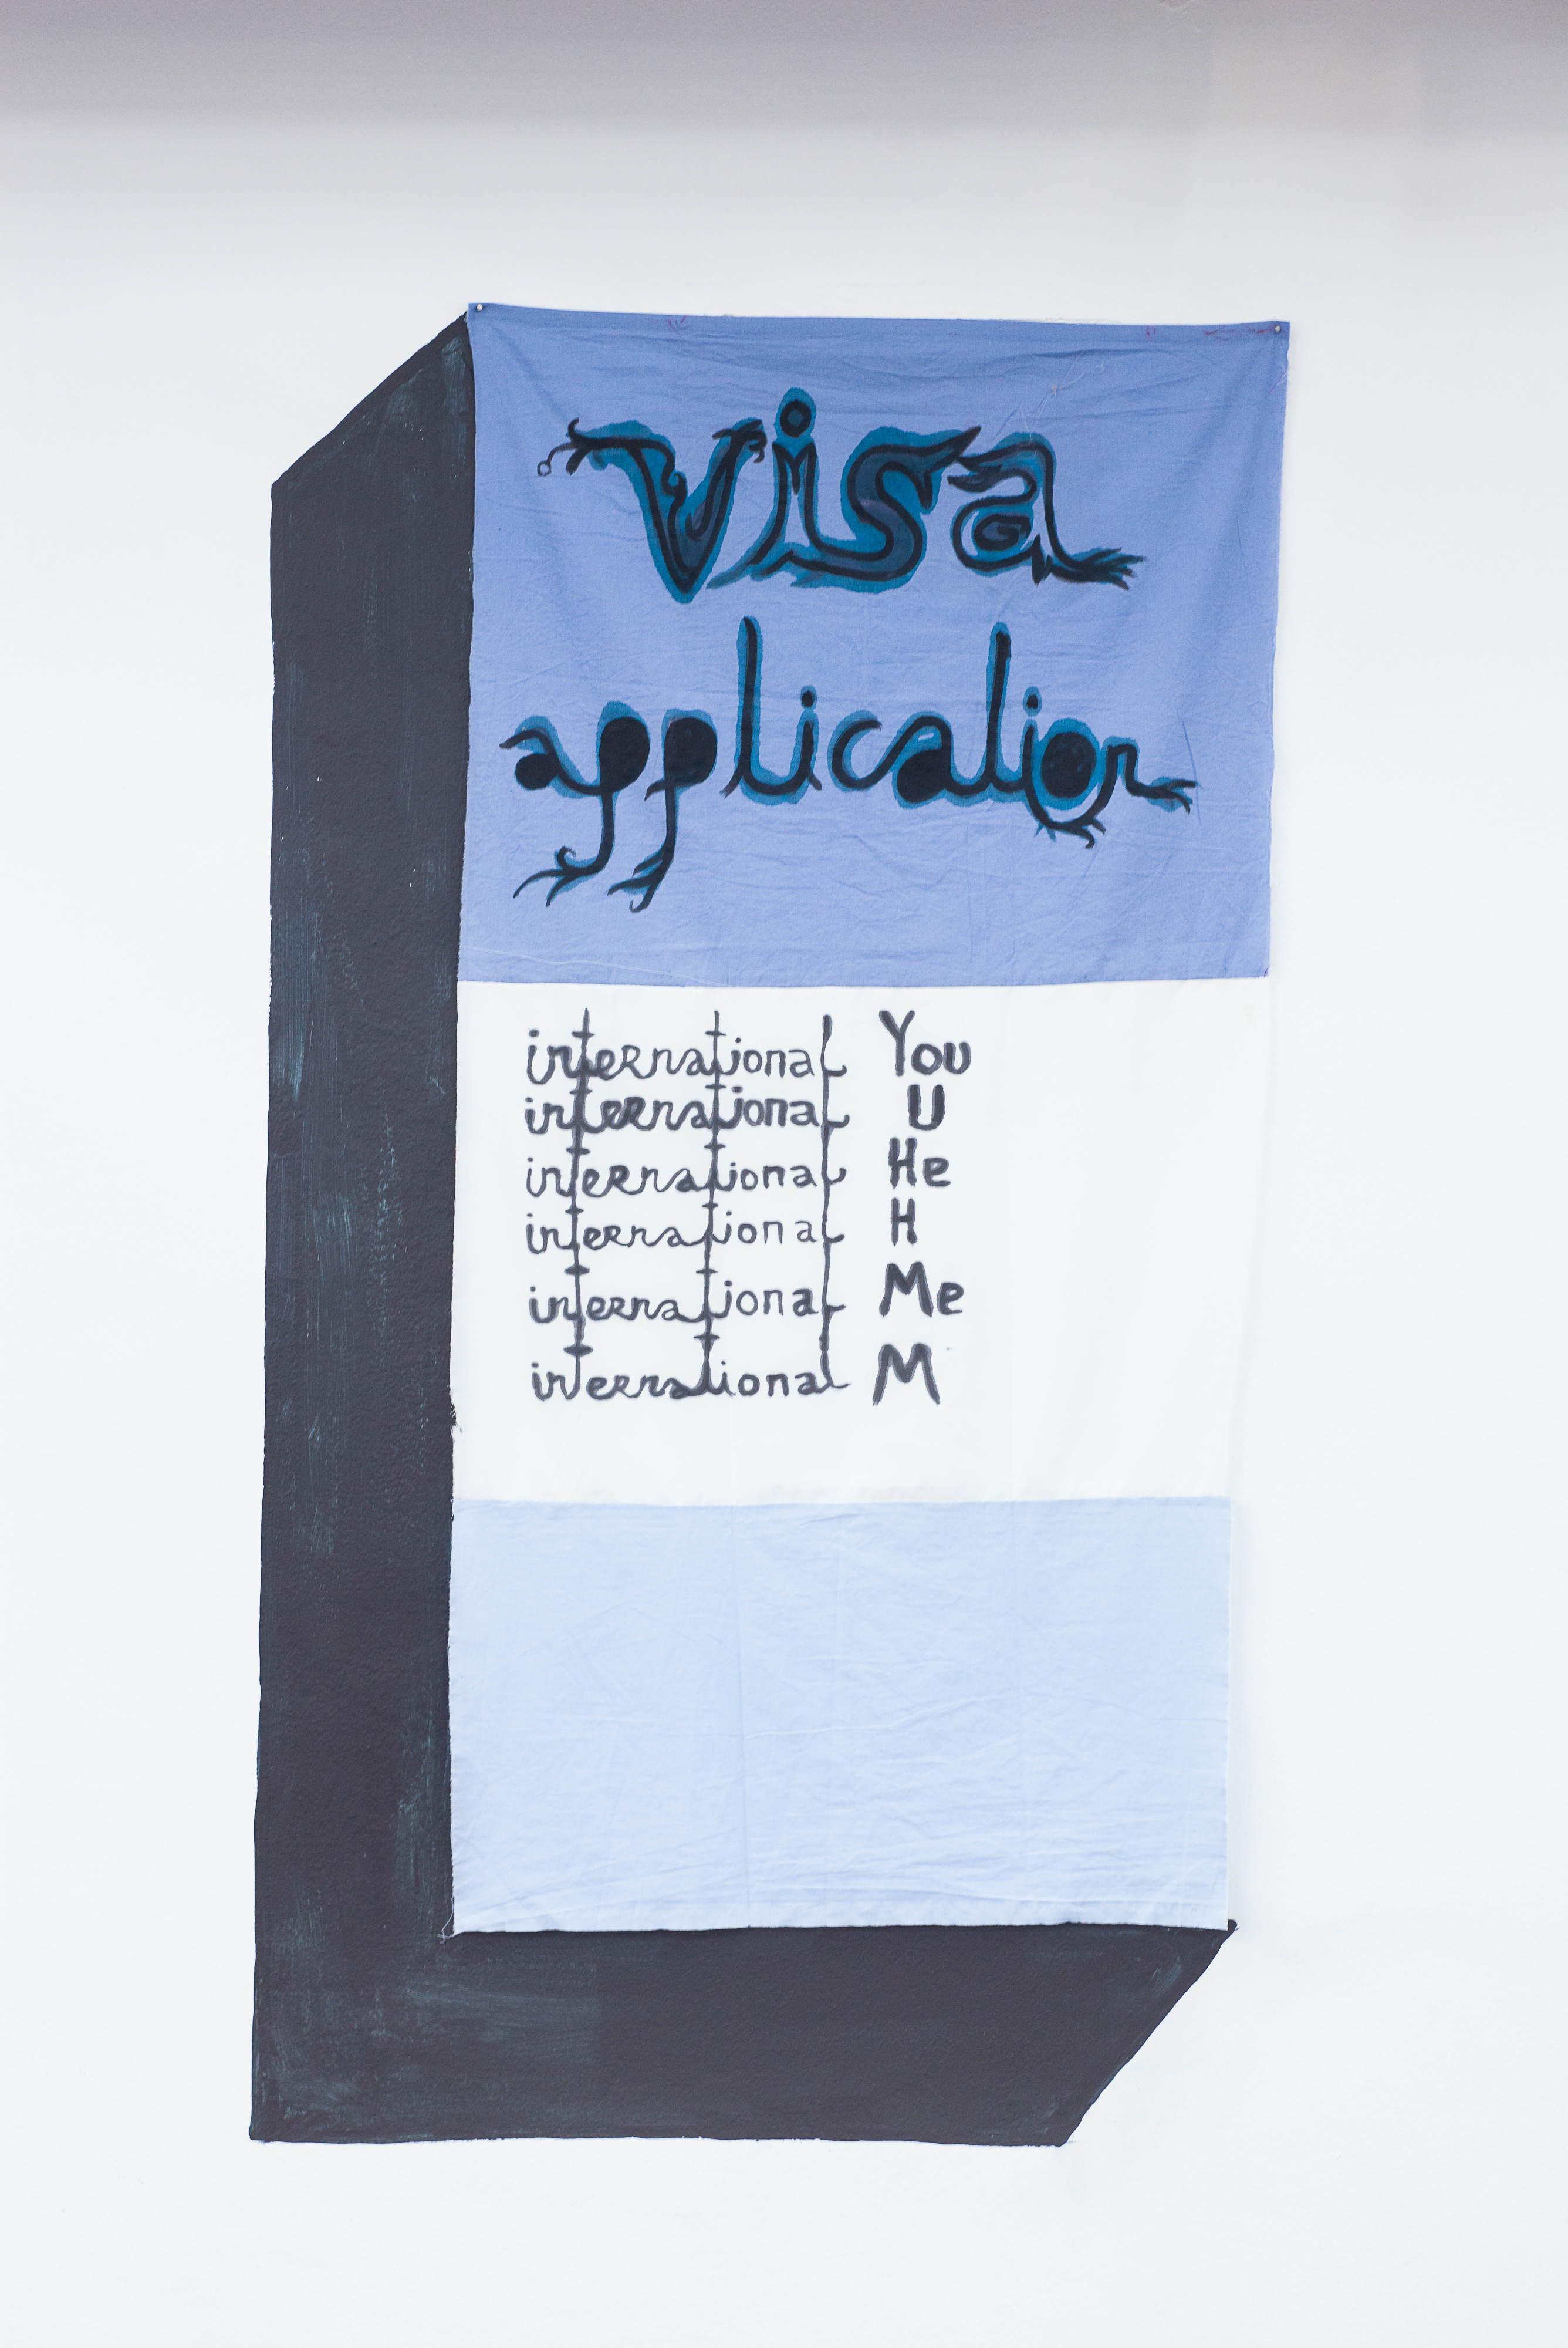 visa
application
international You
international U
international He
international H
international Me
international M